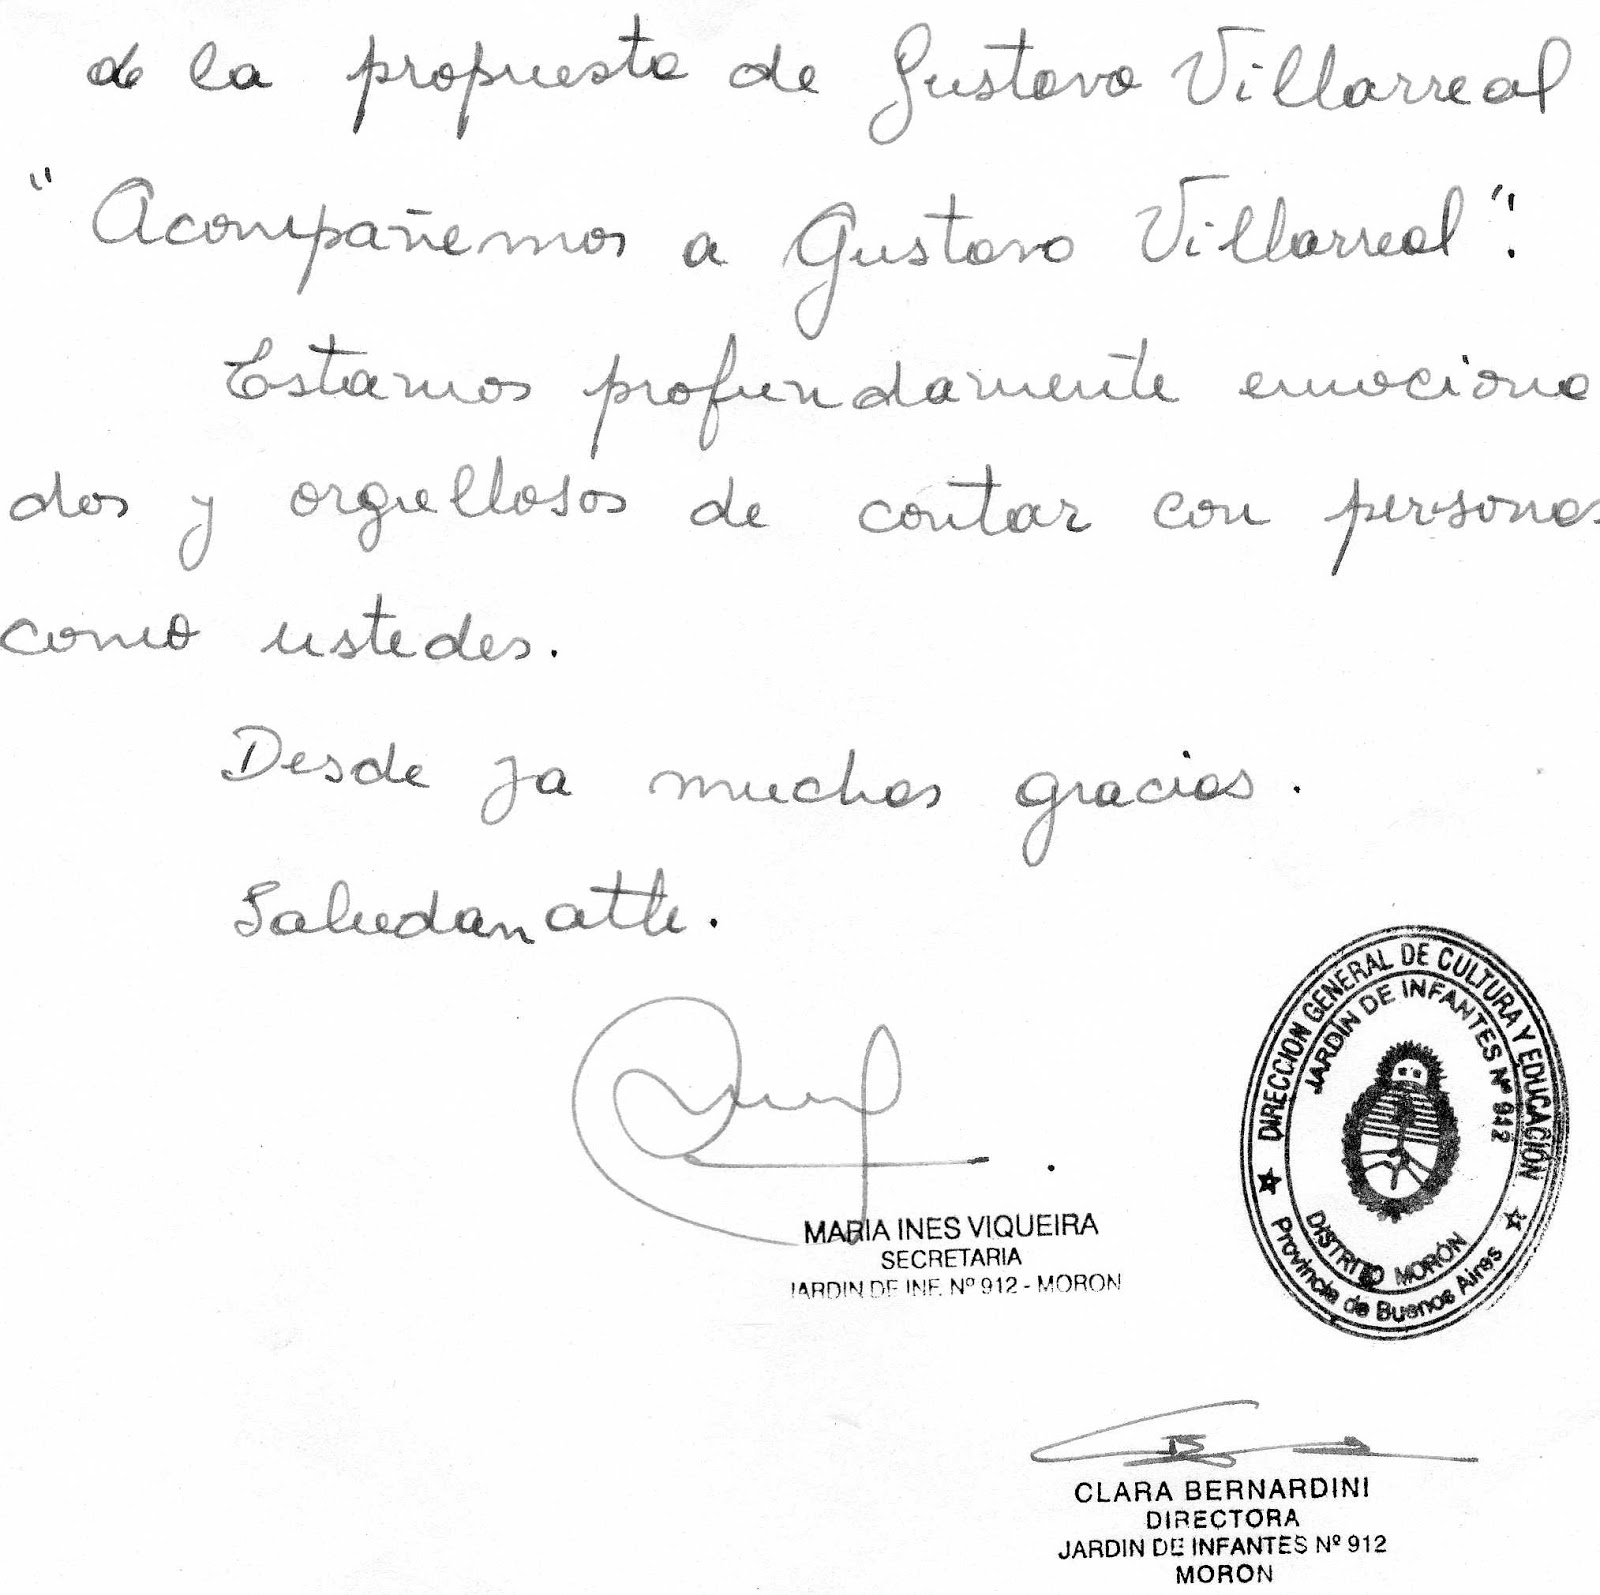 de la propuesta de Gustavo Villarreal
"Acompañemos a Gustavo Villarreal".
Estamos profundamente emociona
dos y orgullosos de contar con personas
como ustedes.
Desde ya muchas gracias.
Saludan atte.
MARIA INES VIQUEIRA
SECRETARIA
JARDIN DE INF. Nº 912 - MORON
DIRECCION GENERAL DE CULTURA Y EDUCACIÓN
JARDÍN DE INFANTES Nº 912
DISTRITO MORÓN
Provincia de Buenos Aires
CLARA BERNARDINI
DIRECTORA
JARDIN DE INFANTES Nº 912
MORON